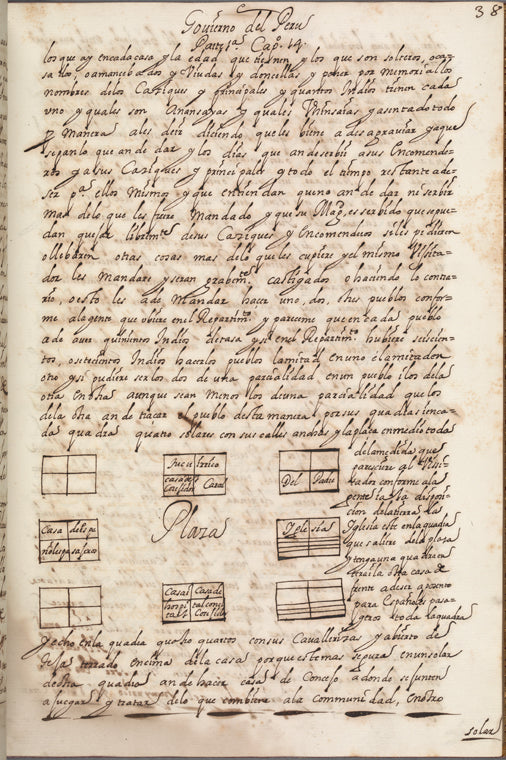 38
Govierno del Peru
Part. 1ª Cap. 14
los que ay en cada casa y la edad que tienen y los que son solteros, o casa-
dos o amancebados y Viudas y doncellas y poner por memoria los
nombres de los Caciques y principales y quantos Indios tienen cada
vno y quales son Anansayas y quales Vrinsaias y asentado todo
manera ales decir diciendo que les biene a desagraviar y a que
sepan lo que an de dar y los dias que an de serbir a sus Encomende-
ros y a sus Caciques y principales y todo el tiempo restante a de
ser pª ellos Mismos y que entiendan que no an de dar ni serbir
mas de lo que les fuere Mandado y que su Magd es serbido que se pue-
dan quejar libremte de sus Caciques y Encomenderos si les pidieren
o llebaren otras cosas mas de lo que les cupiere y el mismo Visita-
dor les Mandare y seran grabemte castigados o haciendo lo contra-
rio, o esto les a de Mandar hacer uno, dos, o tres pueblos confor-
me a la gente que obiere en el Repartimto y pareceme que en cada pueblo
a de aver quinientos Indios de tasa y si en el Repartimto hubiere seiscien-
tos o setecientos Indios hacerlos pueblos la mitad en uno e la mitad en
otro y si pudiere ser los dos de una parcialidad en un pueblo i los de la
otra en otro aunque sean menos los de una parcialidad que los
de la otra an de tracar el pueblo desta manera por sus quadras en ca-
da quadra quatro solares con sus calles anchas y la plaça en medio todo
de la medida que
pareciere al Visi-
tador conforme a la
gente i a la disposi-
cion de la tierra la
Iglesia este en la quadra
que saliere de la plaça
y tenga una quadra en-
tera i la otra casa de
frente a de ser aposento
para Españoles pasa-
geros toda la quadra
Jucu trreo
casa del Consejo Corral
Del Padre
Casa de Espa
ñoles pasajeros
Plaza
Iglesia
Casa l Casa de
hospital Correjidor
y echo en la quadra quatro quartos con sus Cavallerizas y abierto de
teja terrado encima de la casa porque es tema segura en un solar
de otra quadra an de hacer casa de Concejo adonde se junten
a juzgar y tratar de lo que conbiene a la communidad, en otro
solar